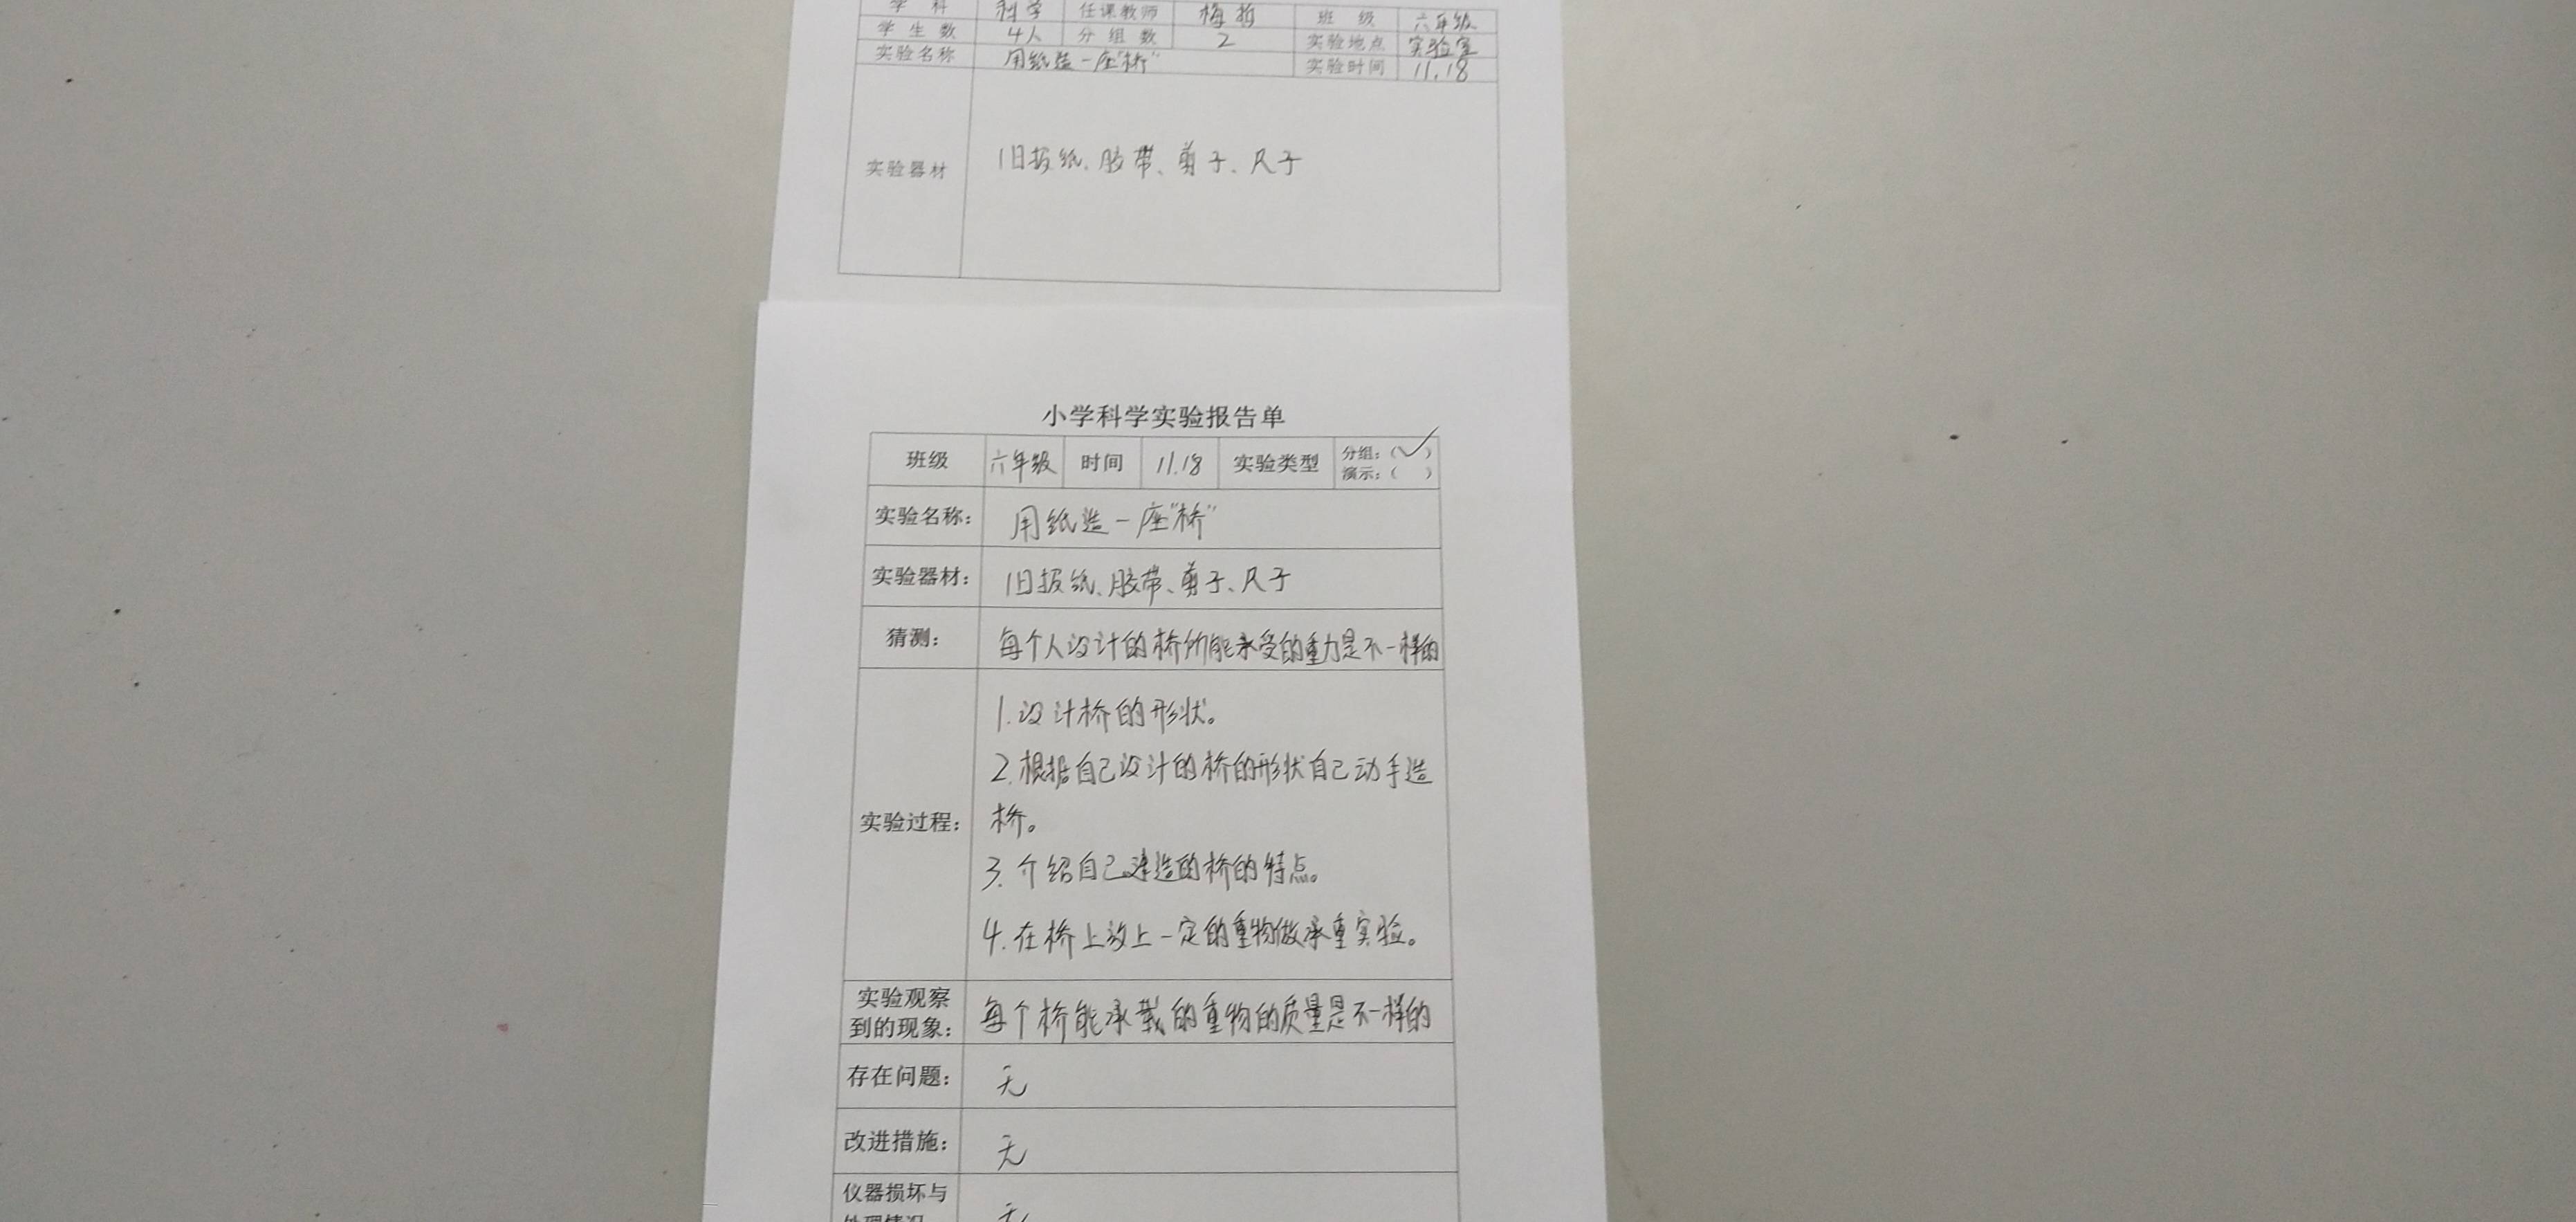 学科 科学 任课教师 梅 班级 六年级
学生数 4人 分组数 2 实验地点 实验室
实验名称 用纸造一座“桥” 实验时间 11.18
实验器材 旧报纸、胶带、剪子、尺子
小学科学实验报告单
班级 六年级 时间 11.18 实验类型 分组:(✓)
演示:( )
实验名称: 用纸造一座“桥”
实验器材: 旧报纸、胶带、剪子、尺子
猜测: 每个人设计的桥所能承受的重力是不一样的
实验过程:
1.设计桥的形状。
2.根据自己设计的桥的形状自己动手造
桥。
3.介绍自己建造的桥的特点。
4.在桥上放上一定的重物做承重实验。
实验观察
到的现象: 每个桥能承载的重物的质量是不一样的
存在问题: 无
改进措施: 无
仪器损坏与
无